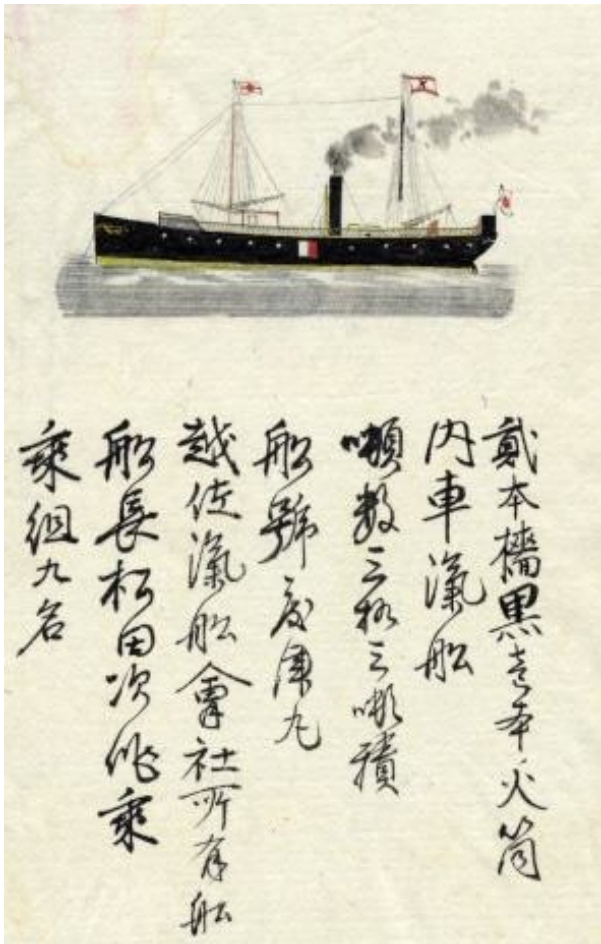 貳本檣黒壱本火筒
内車滊船
噸数三拾三噸積
船號度津丸
越佐滊船會社所有船
船長松田次乗
乗組九名